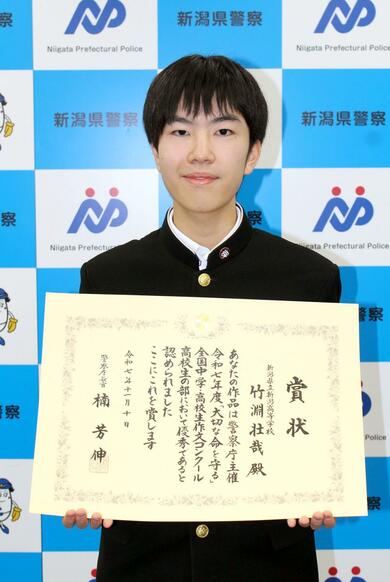 新潟県警察
Niigata Prefectural Police
Niigata Prefectural Police
新潟県警察
新潟県警察
Niigata Prefectural Police
Niigata Prefectural Police
察
賞状
新潟県立新潟高等学校
竹淵壮哉殿
あなたの作品は警察庁主催
令和七年度「大切な命を守る」
全国中学・高校生作文コンクール
高校生の部において優秀であると
認められました
ここにこれを賞します
令和七年十一月十日
警察庁長官
楠芳伸